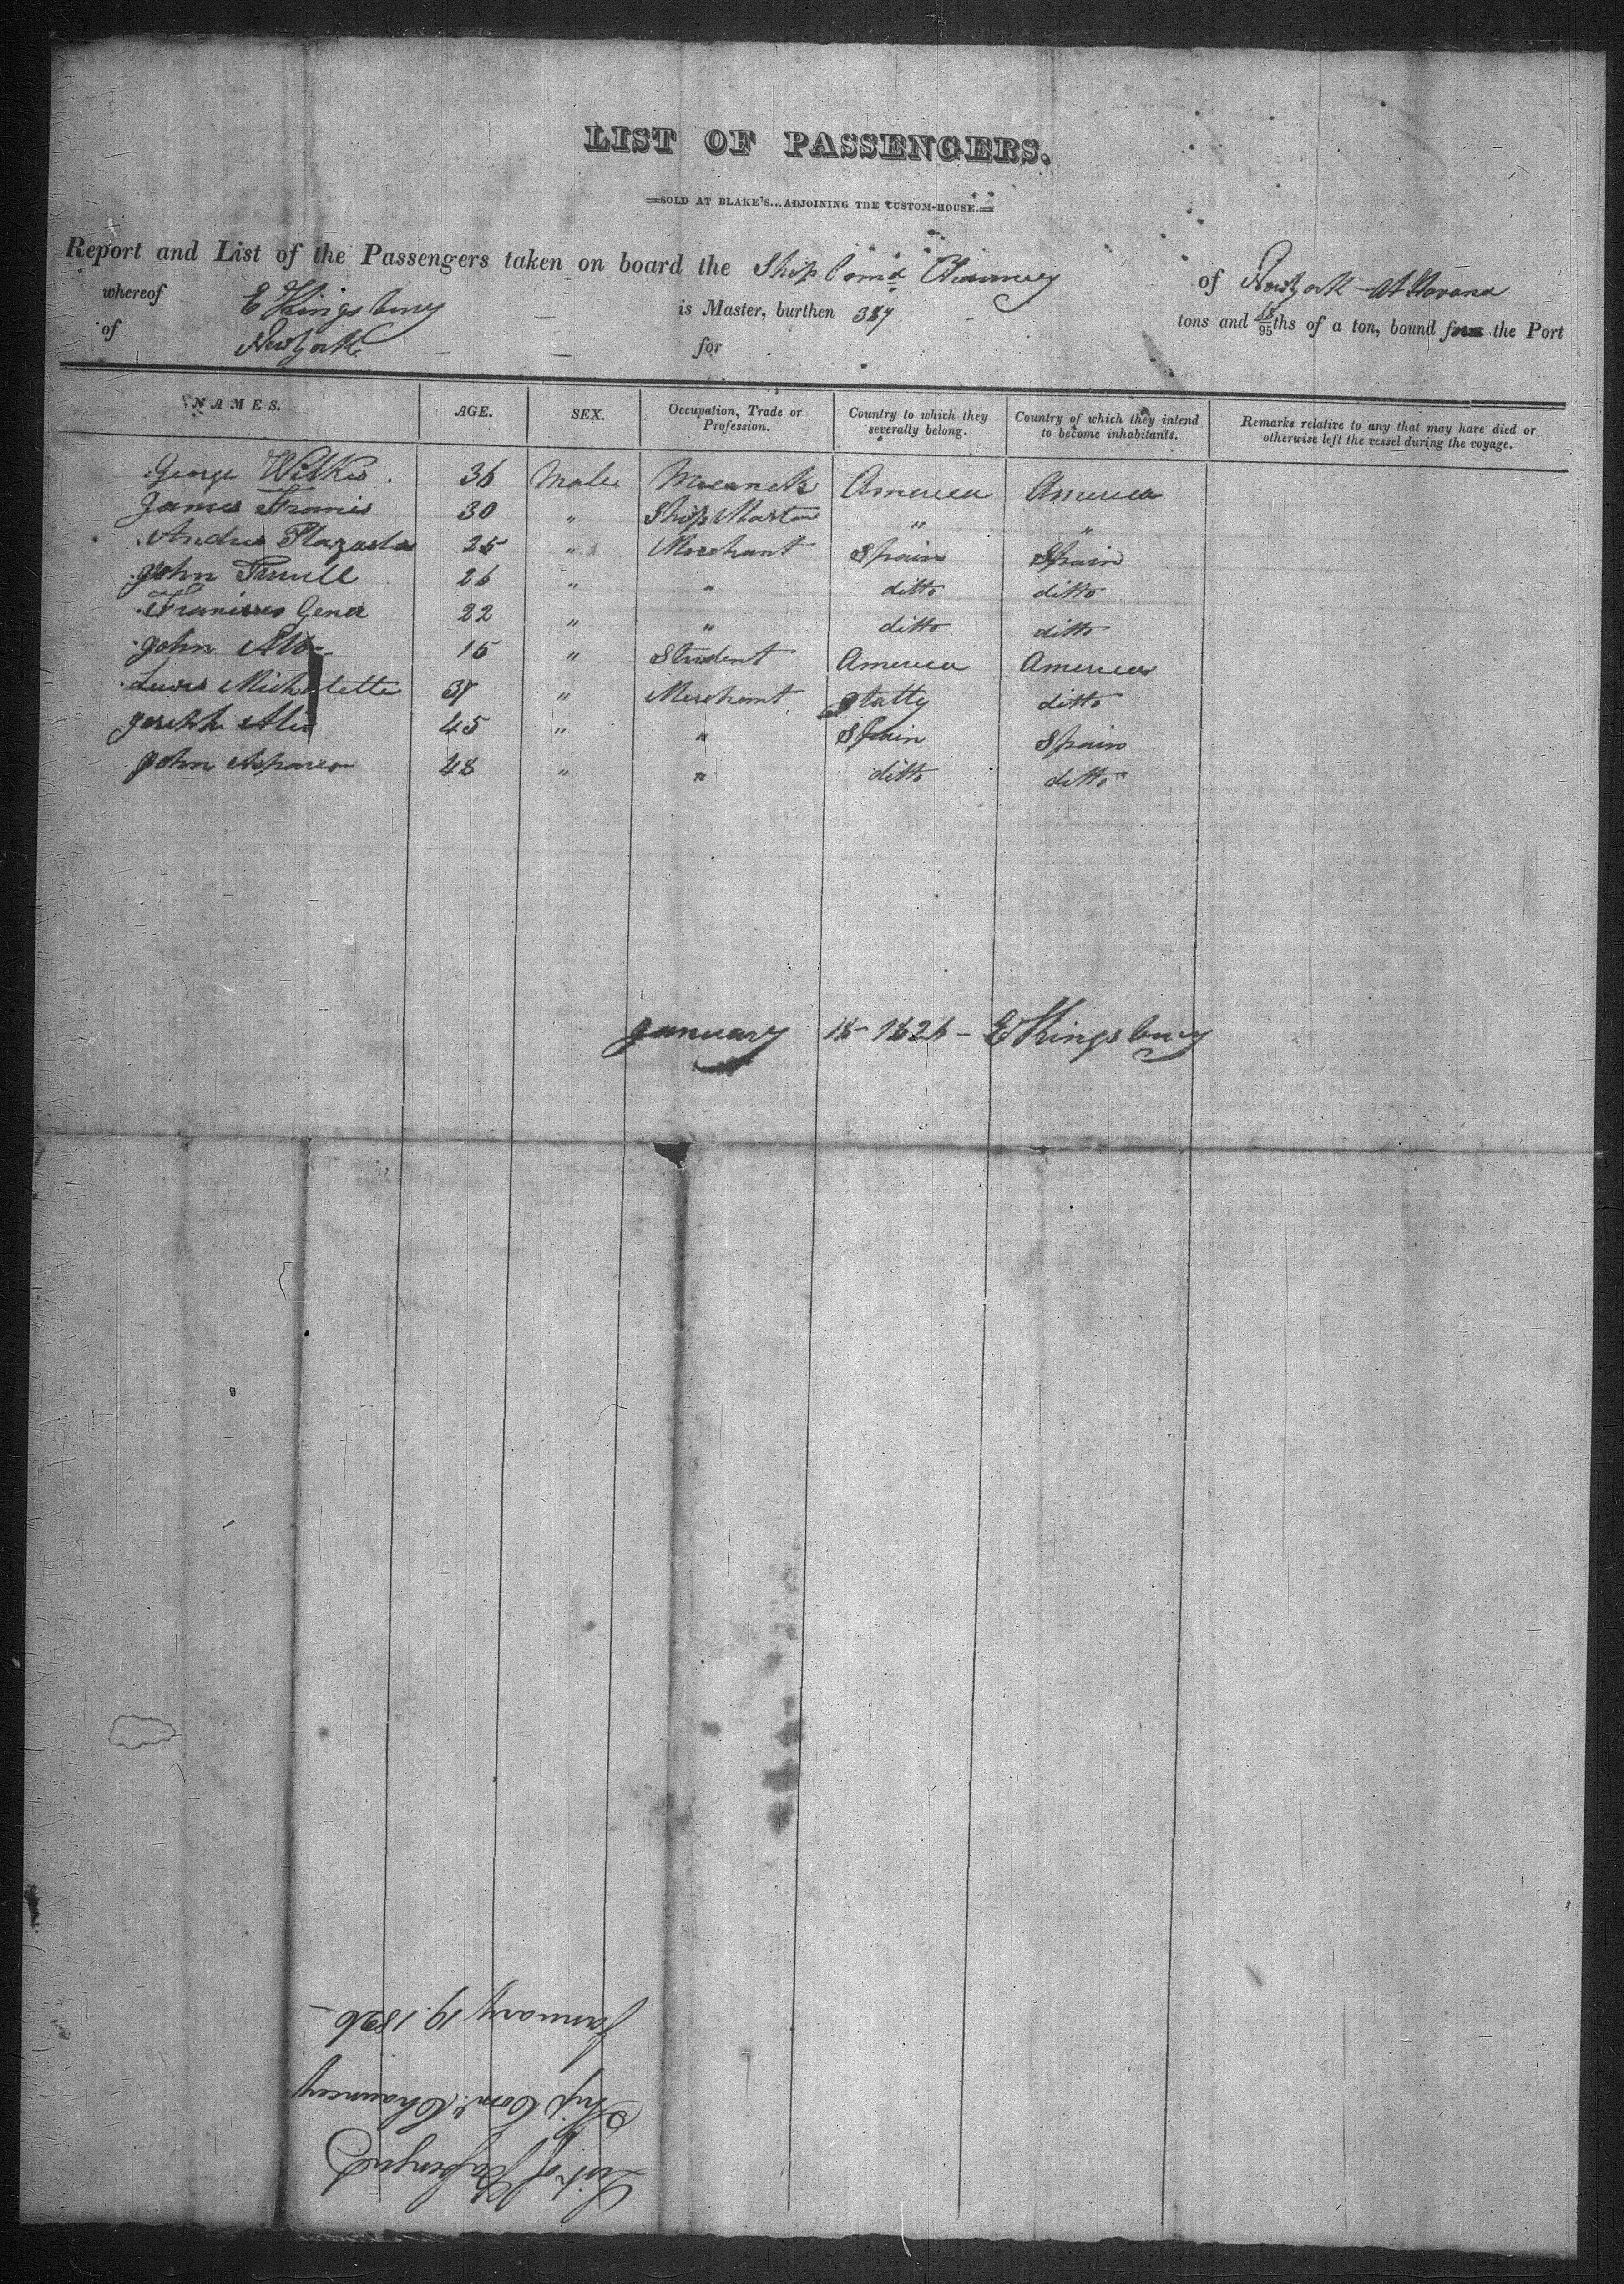 LIST OF PASSENGERS.
SOLD AT BLAKE'S...ADJOINING THE CUSTOM-HOUSE.
Report and List of the Passengers taken on board the Ship Comd Chauncey of New York At Havana
whereof E Kingsbury is Master, burthen 387 tons and 95ths of a ton, bound from the Port
of New York for
NAMES. AGE. SEX. Occupation, Trade or Profession. Country to which they severally belong. Country of which they intend to become inhabitants. Remarks relative to any that may have died or otherwise left the vessel during the voyage.
George Wilkes 36 Male Mecanck America America
James Francis 30 " Ship Master " "
25 " Merchant Spain Spain
John 26 " " ditto ditto
Francisco Gener 22 " " ditto ditto
John 15 " Student America America
Lewis 37 " Merchant Itally ditto
Joseph 45 " " Spain Spain
John 48 " " ditto ditto
January 18 1826 - E Kingsbury
List of Passengers
Ship Comd. Chauncey
January 19. 1826 -